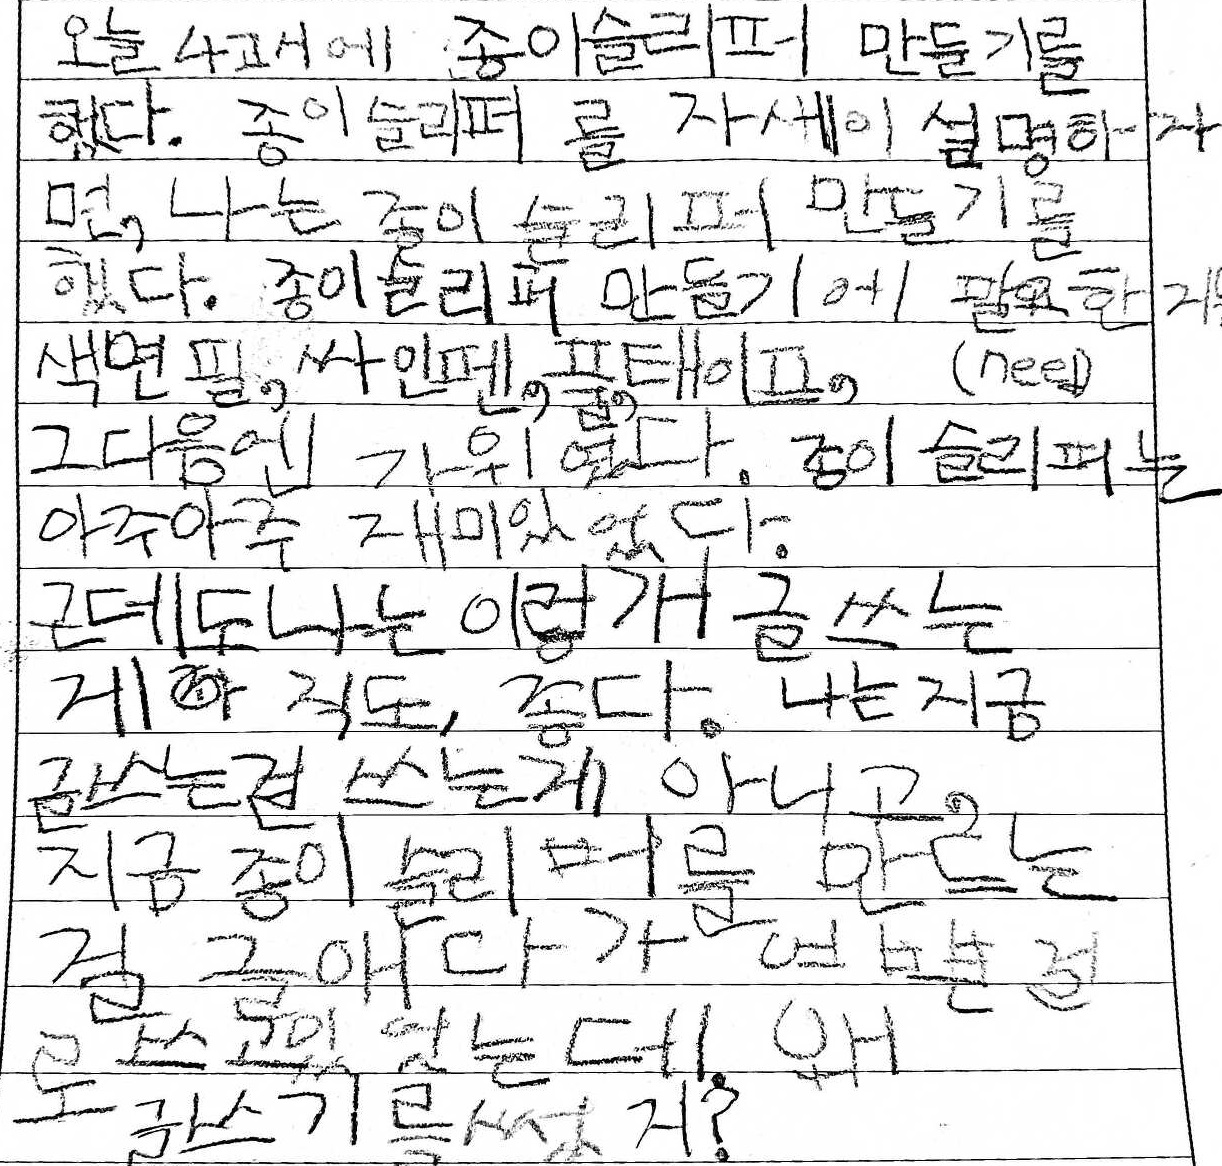 오늘 4교시에 종이슬리퍼 만들기를
했다. 종이슬리퍼 를 자세이 설명하자
면, 나는 종이 슬리퍼 만들기를
했다. 종이슬리퍼 만들기에 필요한 게
색연필, 싸인펜, 풀, 테이프, (need)
그다음엔 가위였다. 종이 슬리퍼는
아주아주 재미있었다.
근데도 나는 이렇개 글쓰는
게 아직도, 좋다. 나는 지금
글쓰는걸 쓰는게 아니고,
지금 종이 슬리퍼를 만드는
걸 글에다가 연분정
로 쓰고있었는데, 왜
글쓰기를 썼지?